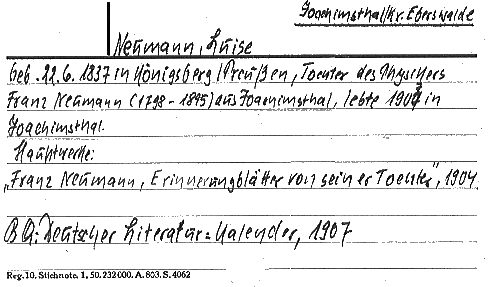 Joachimsthal/Kr. Eberswalde
Neumann, Luise
geb. 22.6.1837 in Königsberg/Preußen, Tochter des Physikers
Franz Neumann (1798-1895) aus Joachimsthal, lebte 1907 in
Joachimsthal.
Hauptwerke:
"Franz Neumann, Erinnerungblätter von seiner Tochter", 1904.
BQ: Deutscher Literatur=Kalender, 1907
Reg. 10. Stichnote. 1, 50. 232000. A. 803. S. 4062